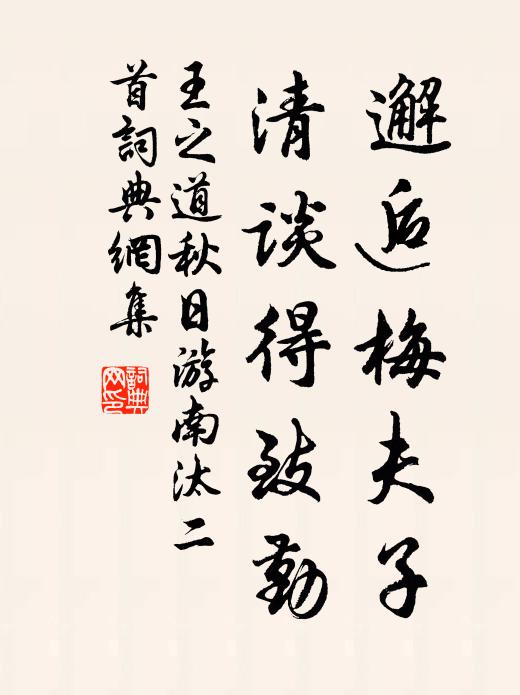 邂逅梅夫子
清談得致勤
王之道秋日游南汰二
首詞典網集
詞典網印